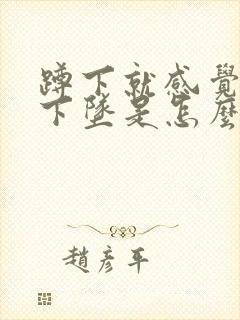 蹲下就感覺
下墜是怎麼
趙彥平